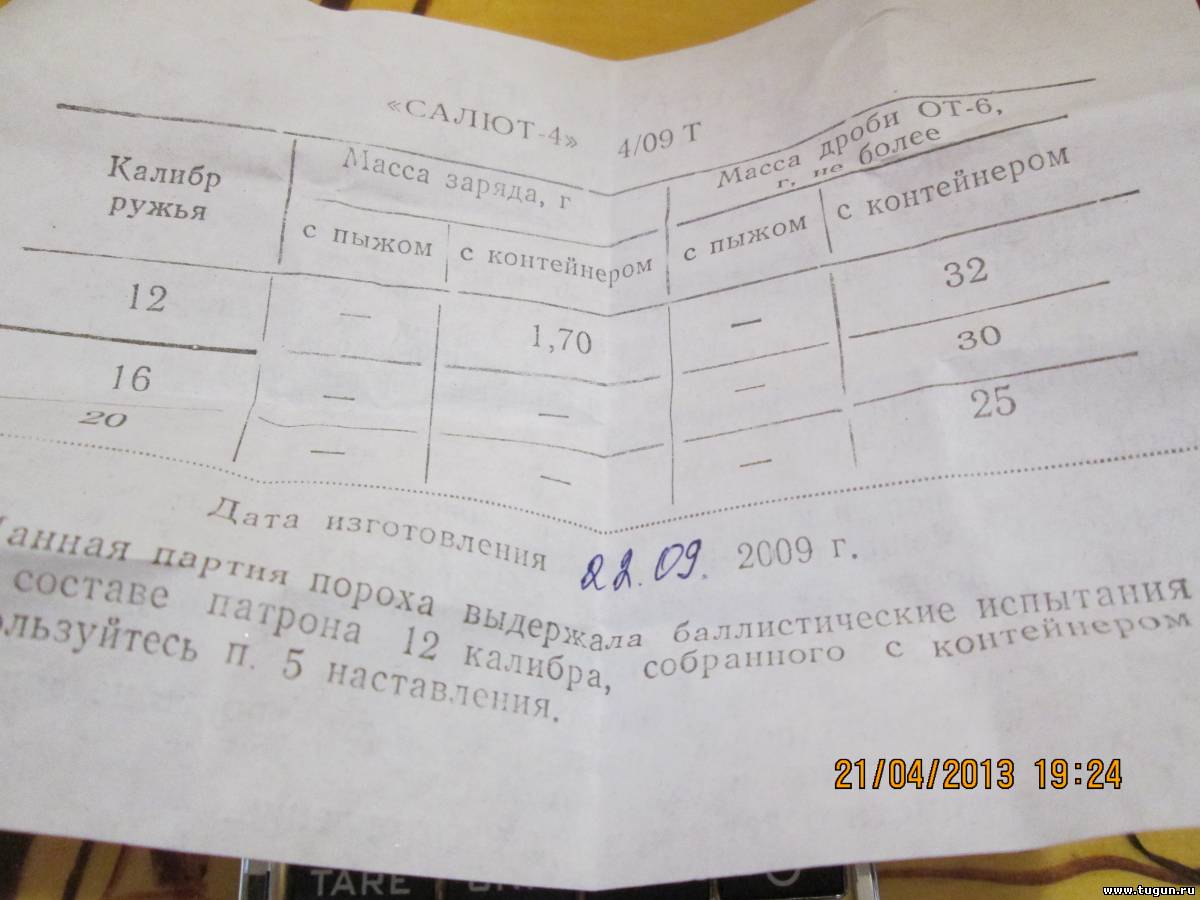 «САЛЮТ-4» 4/09 Т
Калибр ружья
Масса заряда, г
Масса дроби ОТ-6, г, не более
с пыжом с контейнером с пыжом с контейнером
12 — 1,70 — 32
16 — — — 30
20 — — — 25
Дата изготовления 22.09. 2009 г.
анная партия пороха выдержала баллистические испытания
составе патрона 12 калибра, собранного с контейнером
ользуйтесь п. 5 наставления.
21/04/2013 19:24
TARE
www.tugun.ru